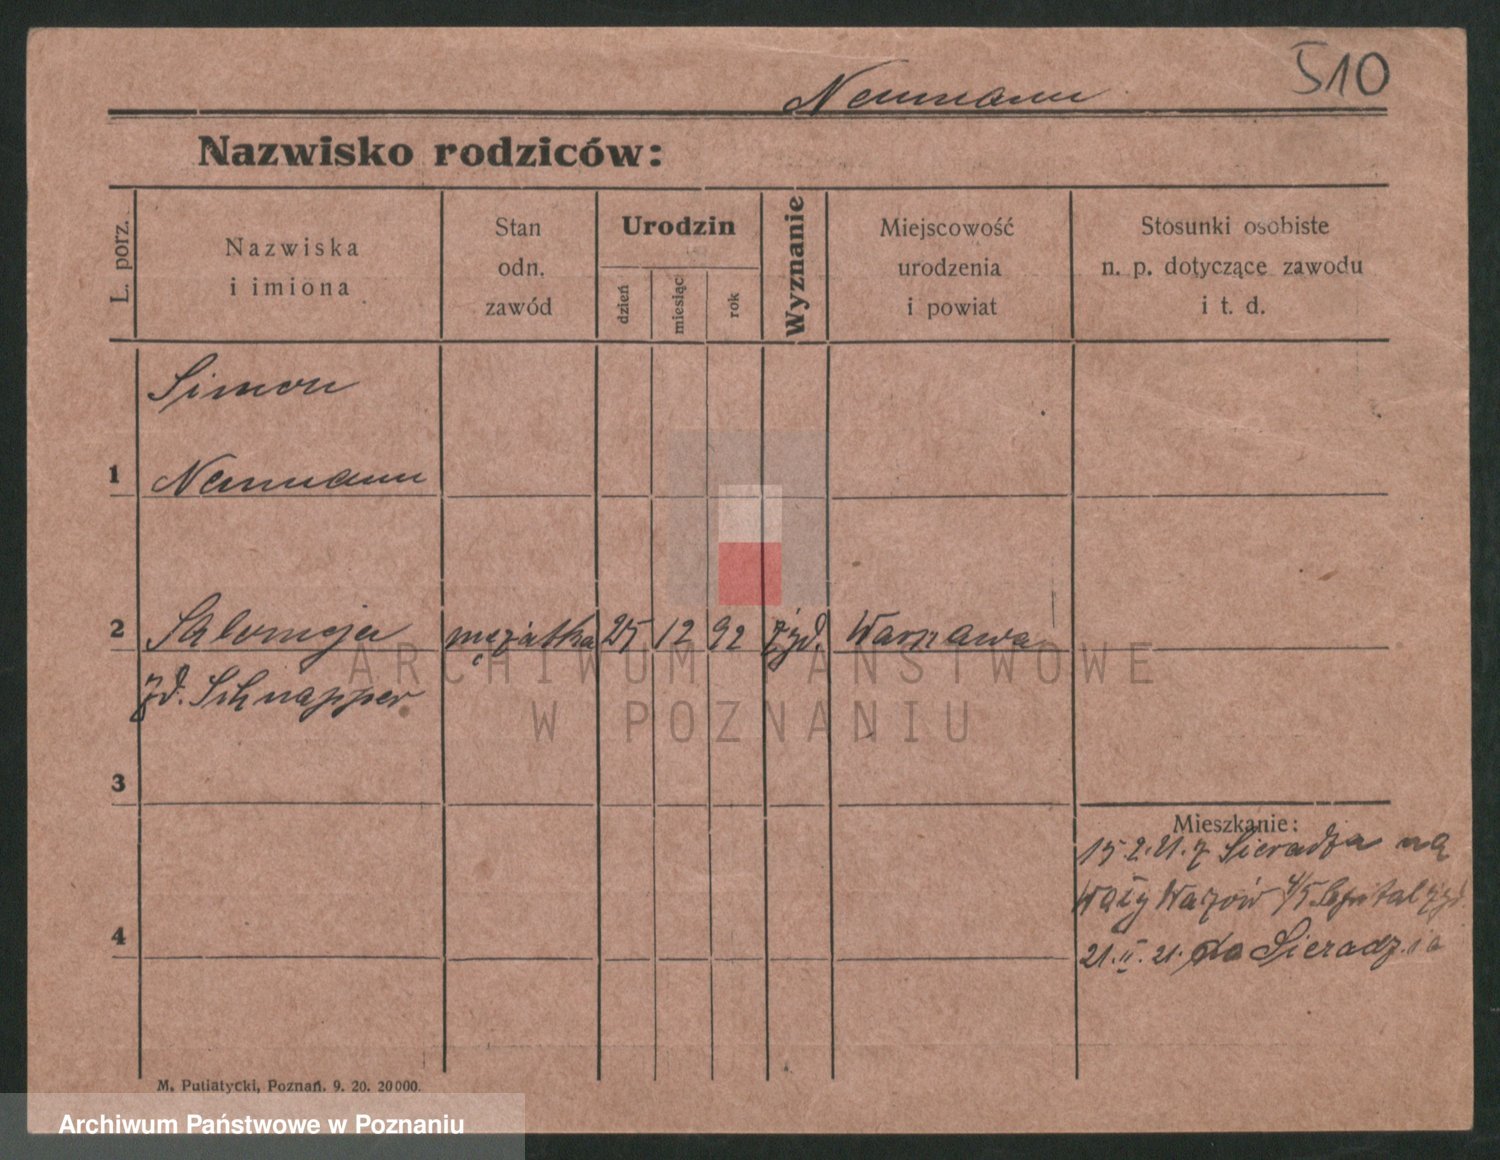 510
Neumann
Nazwisko rodziców:
L. porz.
Nazwiska
i imiona
Stan
odn.
zawód
Urodzin
dzień
miesiąc
rok
Wyznanie
Miejscowość
urodzenia
i powiat
Stosunki osobiste
n. p. dotyczące zawodu
i t. d.
Simon
1 Neumann
2 Salomeja mężatka 25 12 92 żyd. Warszawa
zd. Schnapper
3
4
Mieszkanie:
15.2.21. z Sieradza na
Wały Wazów 4/5 Szpital żyd.
21.II.21. do Sieradza
M. Putiatycki, Poznań. 9. 20. 20000.
ARCHIWUM PAŃSTWOWE
W POZNANIU
Archiwum Państwowe w Poznaniu